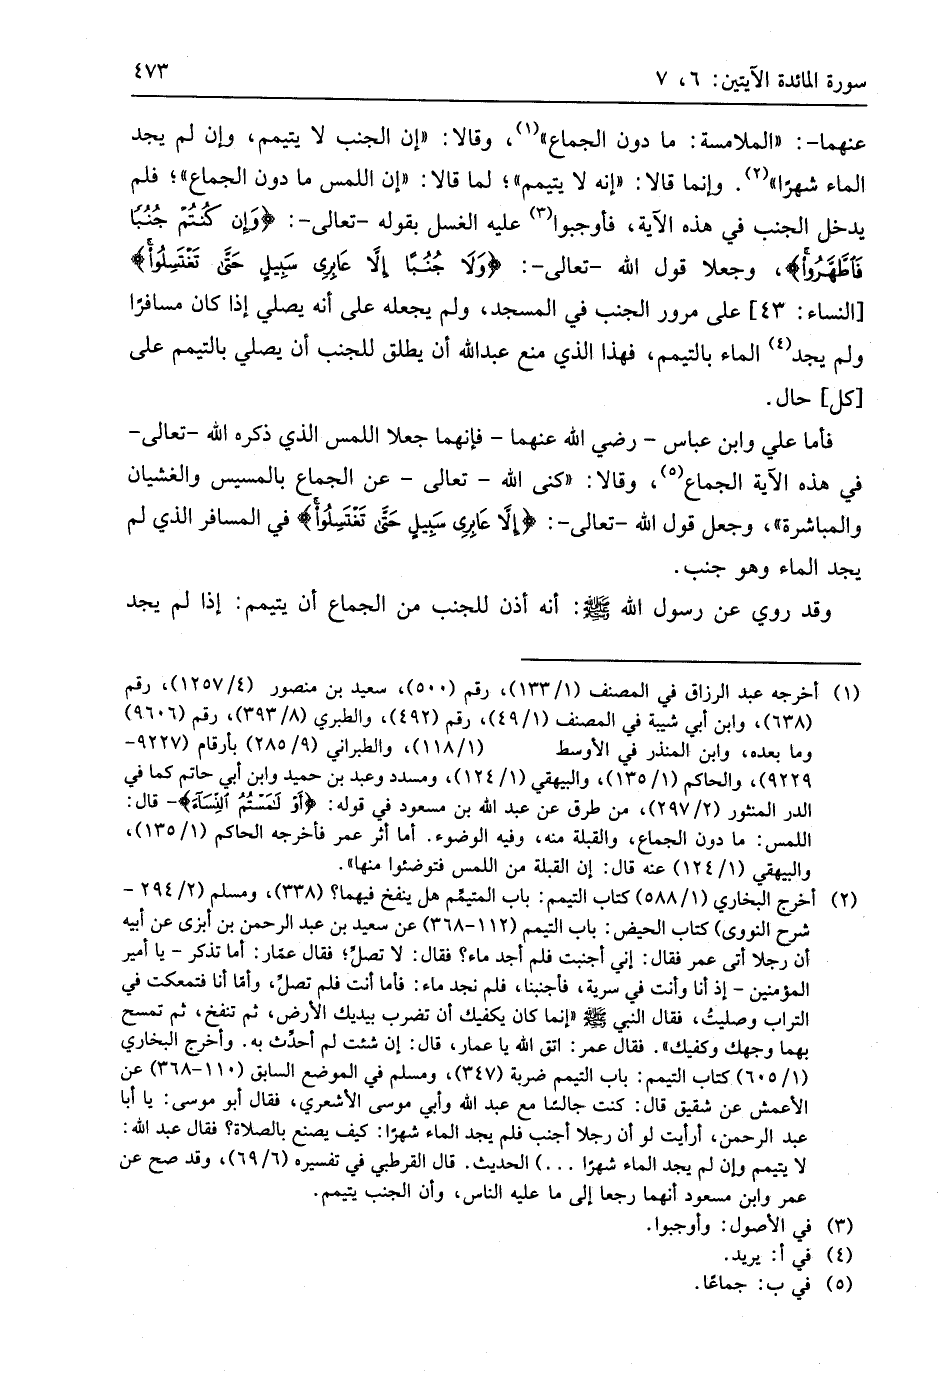 سورة المائدة الآيتين: ٦، ٧
٤٧٣
عنهما-: «الملامسة: ما دون الجماع»(١)، وقالا: «إن الجنب لا يتيمم، وإن لم يجد
الماء شهرًا»(٢). وإنما قالا: «إنه لا يتيمم»؛ لما قالا: «إن اللمس ما دون الجماع»؛ فلم
يدخل الجنب في هذه الآية، فأوجبوا(٣) عليه الغسل بقوله -تعالى-: ﴿وَإِن كُنتُمْ جُنُبًا
فَٱطَّهَّرُوا۟﴾، وجعلا قول الله -تعالى-: ﴿وَلَا جُنُبًا إِلَّا عَابِرِى سَبِيلٍ حَتَّىٰ تَغْتَسِلُوا۟﴾
[النساء: ٤٣] على مرور الجنب في المسجد، ولم يجعله على أنه يصلي إذا كان مسافرًا
ولم يجد(٤) الماء بالتيمم، فهذا الذي منع عبدالله أن يطلق للجنب أن يصلي بالتيمم على
[كل] حال.
فأما علي وابن عباس - رضي الله عنهما - فإنهما جعلا اللمس الذي ذكره الله -تعالى-
في هذه الآية الجماع(٥)، وقالا: «كنى الله - تعالى - عن الجماع بالمسيس والغشيان
والمباشرة»، وجعل قول الله -تعالى-: ﴿إِلَّا عَابِرِى سَبِيلٍ حَتَّىٰ تَغْتَسِلُوا۟﴾ في المسافر الذي لم
يجد الماء وهو جنب.
وقد روي عن رسول الله ﷺ: أنه أذن للجنب من الجماع أن يتيمم: إذا لم يجد
(١) أخرجه عبد الرزاق في المصنف (١/١٣٣)، رقم (٥٠٠)، سعيد بن منصور (٤/١٢٥٧)، رقم
(٦٣٨)، وابن أبي شيبة في المصنف (١/٤٩)، رقم (٤٩٢)، والطبري (٨/٣٩٣)، رقم (٩٦٠٦)
وما بعده، وابن المنذر في الأوسط (١/١١٨)، والطبراني (٩/٢٨٥) بأرقام (٩٢٢٧-
٩٢٢٩)، والحاكم (١/١٣٥)، والبيهقي (١/١٢٤)، ومسدد وعبد بن حميد وابن أبي حاتم كما في
الدر المنثور (٢/٢٩٧)، من طرق عن عبد الله بن مسعود في قوله: ﴿أَوْ لَٰمَسْتُمُ ٱلنِّسَآءَ﴾- قال:
اللمس: ما دون الجماع، والقبلة منه، وفيه الوضوء. أما أثر عمر فأخرجه الحاكم (١/١٣٥)،
والبيهقي (١/١٢٤) عنه قال: إن القبلة من اللمس فتوضئوا منها».
(٢) أخرج البخاري (١/٥٨٨) كتاب التيمم: باب المتيمِّم هل ينفخ فيهما؟ (٣٣٨)، ومسلم (٢/٢٩٤ -
شرح النووى) كتاب الحيض: باب التيمم (١١٢-٣٦٨) عن سعيد بن عبد الرحمن بن أبزى عن أبيه
أن رجلا أتى عمر فقال: إني أجنبت فلم أجد ماء؟ فقال: لا تصلِّ؛ فقال عمّار: أما تذكر - يا أمير
المؤمنين - إذ أنا وأنت في سرية، فأجنبنا، فلم نجد ماء: فأما أنت فلم تصلِّ، وأمّا أنا فتمعكت في
التراب وصليتُ، فقال النبي ﷺ «إنما كان يكفيك أن تضرب بيديك الأرض، ثم تنفخ، ثم تمسح
بهما وجهك وكفيك». فقال عمر: اتق الله يا عمار، قال: إن شئت لم أحدِّث به. وأخرج البخاري
(١/٦٠٥) كتاب التيمم: باب التيمم ضربة (٣٤٧)، ومسلم في الموضع السابق (١١٠-٣٦٨) عن
الأعمش عن شقيق قال: كنت جالسًا مع عبد الله وأبي موسى الأشعري، فقال أبو موسى: يا أبا
عبد الرحمن، أرأيت لو أن رجلا أجنب فلم يجد الماء شهرًا: كيف يصنع بالصلاة؟ فقال عبد الله:
لا يتيمم وإن لم يجد الماء شهرًا ...) الحديث. قال القرطبي في تفسيره (٦/٦٩)، وقد صح عن
عمر وابن مسعود أنهما رجعا إلى ما عليه الناس، وأن الجنب يتيمم.
(٣) في الأصول: وأوجبوا.
(٤) في أ: يريد.
(٥) في ب: جماعًا.